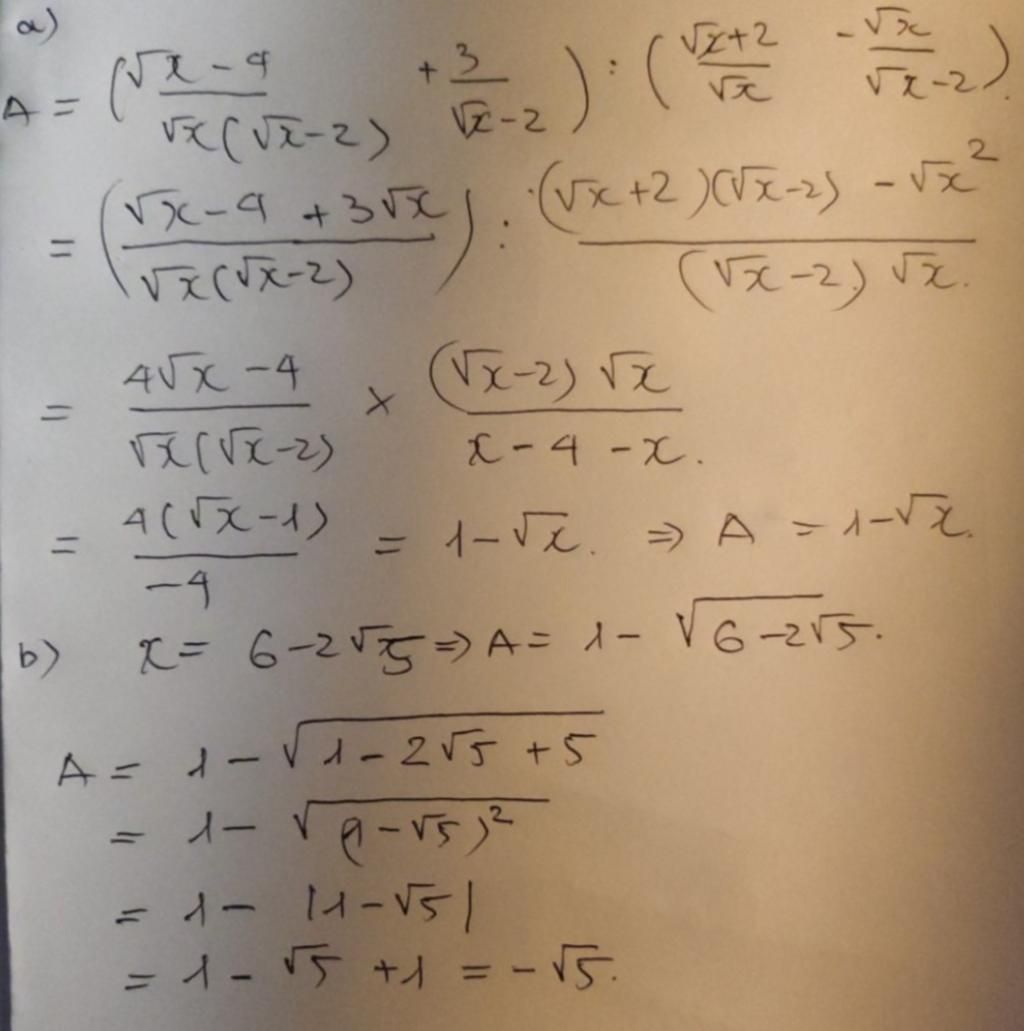 a)
A = (√x - 4 / √x(√x-2) + 3 / √x-2) : (√x+2 / √x - √x / √x-2).
= (√x-4 + 3√x / √x(√x-2)) : (√x+2)(√x-2) - √x² / (√x-2) √x.
= 4√x - 4 / √x(√x-2) × (√x-2) √x / x - 4 - x.
= 4(√x-1) / -4 = 1-√x. ⇒ A = 1-√x.
b) x = 6-2√5 ⇒ A = 1 - √(6-2√5).
A = 1 - √(1-2√5 + 5)
= 1 - √((1-√5)²)
= 1 - |1-√5|
= 1 - √5 + 1 = -√5.